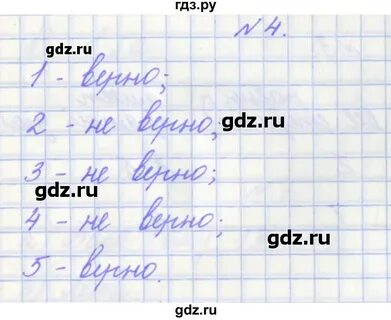 гдз.ру
№ 4.
gdz.ru
1 - верно;
2 - не верно;
gdz.ru
3 - не верно;
4 - не верно;
gdz.ru
5 - верно.